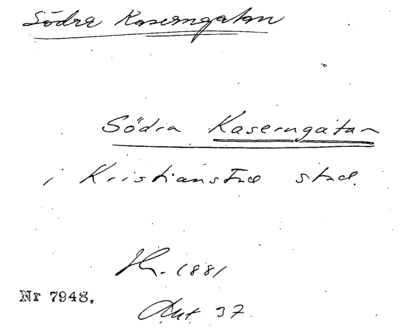 Södra Kaserngatan
Södra Kaserngatan
i Kristianstad stad.
Hr. 1881
Nr 7948.
37.